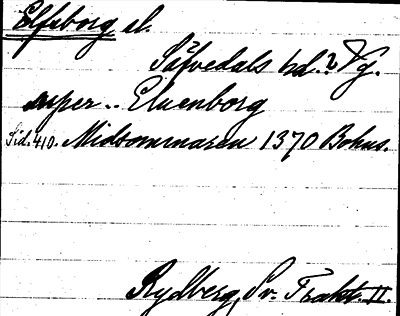 Elfsborg sl.
Säfvedals hd. ? Vg.
super .. Eluenborg
Sid. 410. Midsommaren 1370 Bohus.
Rydberg, Sv. Trakt. II.